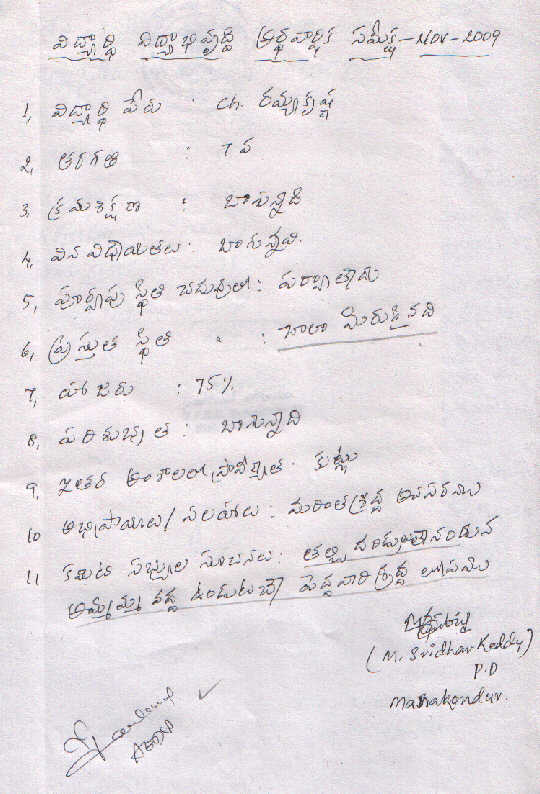 విద్యార్థి విద్యాభివృద్ధి అర్థవార్షిక సమీక్ష - NOV - 2009
1, విద్యార్థి పేరు : Ch. రమ్యకృష్ణ
2, తరగతి : 7 వ
3, క్రమశిక్షణ : బాగున్నది
4, వినవిధేయతలు : బాగున్నవి.
5, పూర్వపు స్థితి చదువులో : పర్వాలేదు
6, ప్రస్తుత స్థితి : చాలా మెరుగైనది
7, హాజరు : 75%
8, పరిశుభ్రత : బాగున్నది
9, ఇతర అంశాలలో ప్రావీణ్యత : కుట్లు
10 అభిప్రాయాలు / సలహాలు : మరింత శ్రద్ధ అవసరము
11 కమిటి సభ్యుల సూచనలు : తల్లి దండ్రులు లేనందున
అమ్మమ్మ వద్ద ఉండుటచే పెద్దవారి శ్రద్ధ లోపము
(M. Sridhar Reddy)
P.D
Manakondur.